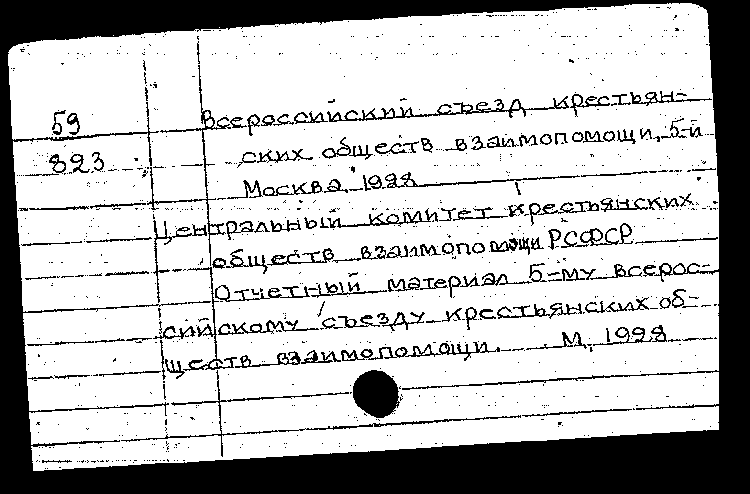 59
823
Всероссийский съезд крестьян-
ских обществ взаимопомощи, 5-й
Москва, 1928
Центральный комитет крестьянских
обществ взаимопомощи РСФСР
Отчетный материал 5-му всерос-
сийскому съезду крестьянских об-
ществ взаимопомощи. М., 1928